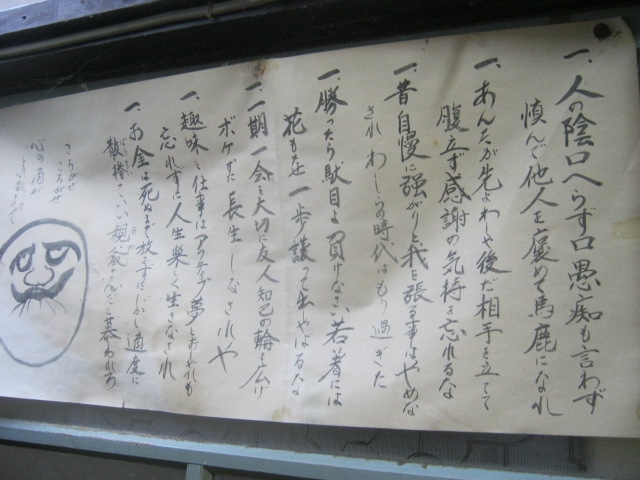 一、人の陰口へらず口愚痴も言わず
慎んで他人を褒めて馬鹿になれ
一、あんたが先よわしゃ後だ相手を立てて
腹立ず感謝の気持を忘れるな
一、昔自慢に強がりと我を張る事はやめな
され わしらの時代はもう過ぎた
一、勝ったら駄目よ負けなさい若者には
花もたせ一歩譲って出しゃばるな
一、一期一会を大切に友人知己の輪を広げ
ボケずに長生しなされや
一、趣味と仕事はアクティブ夢とおしゃれも
忘れずに人生楽しく生きなされ
一、お金は死ぬまで放さずにしかし適度に
慕われる
ころがせ
ころがせ
心の角が